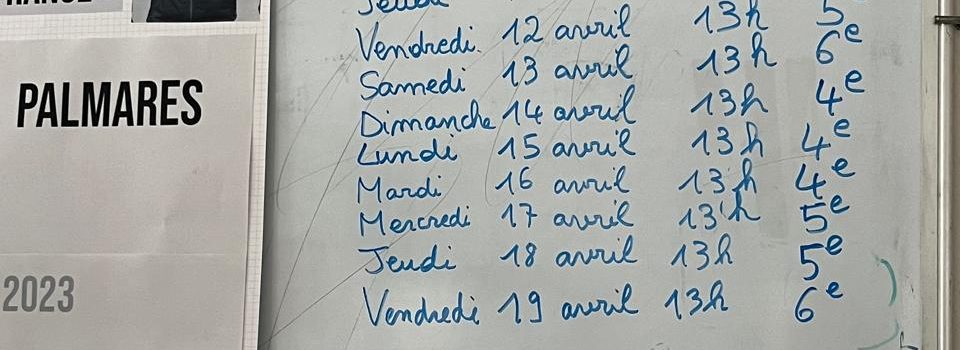 PALMARES
2023
Jeudi
13h 5e
Vendredi 12 avril 13h 6e
Samedi 13 avril 13h 4e
Dimanche 14 avril 13h 4e
Lundi 15 avril 13h 4e
Mardi 16 avril 13h 5e
Mercredi 17 avril 13h 5e
Jeudi 18 avril 13h 6e
Vendredi 19 avril 13h